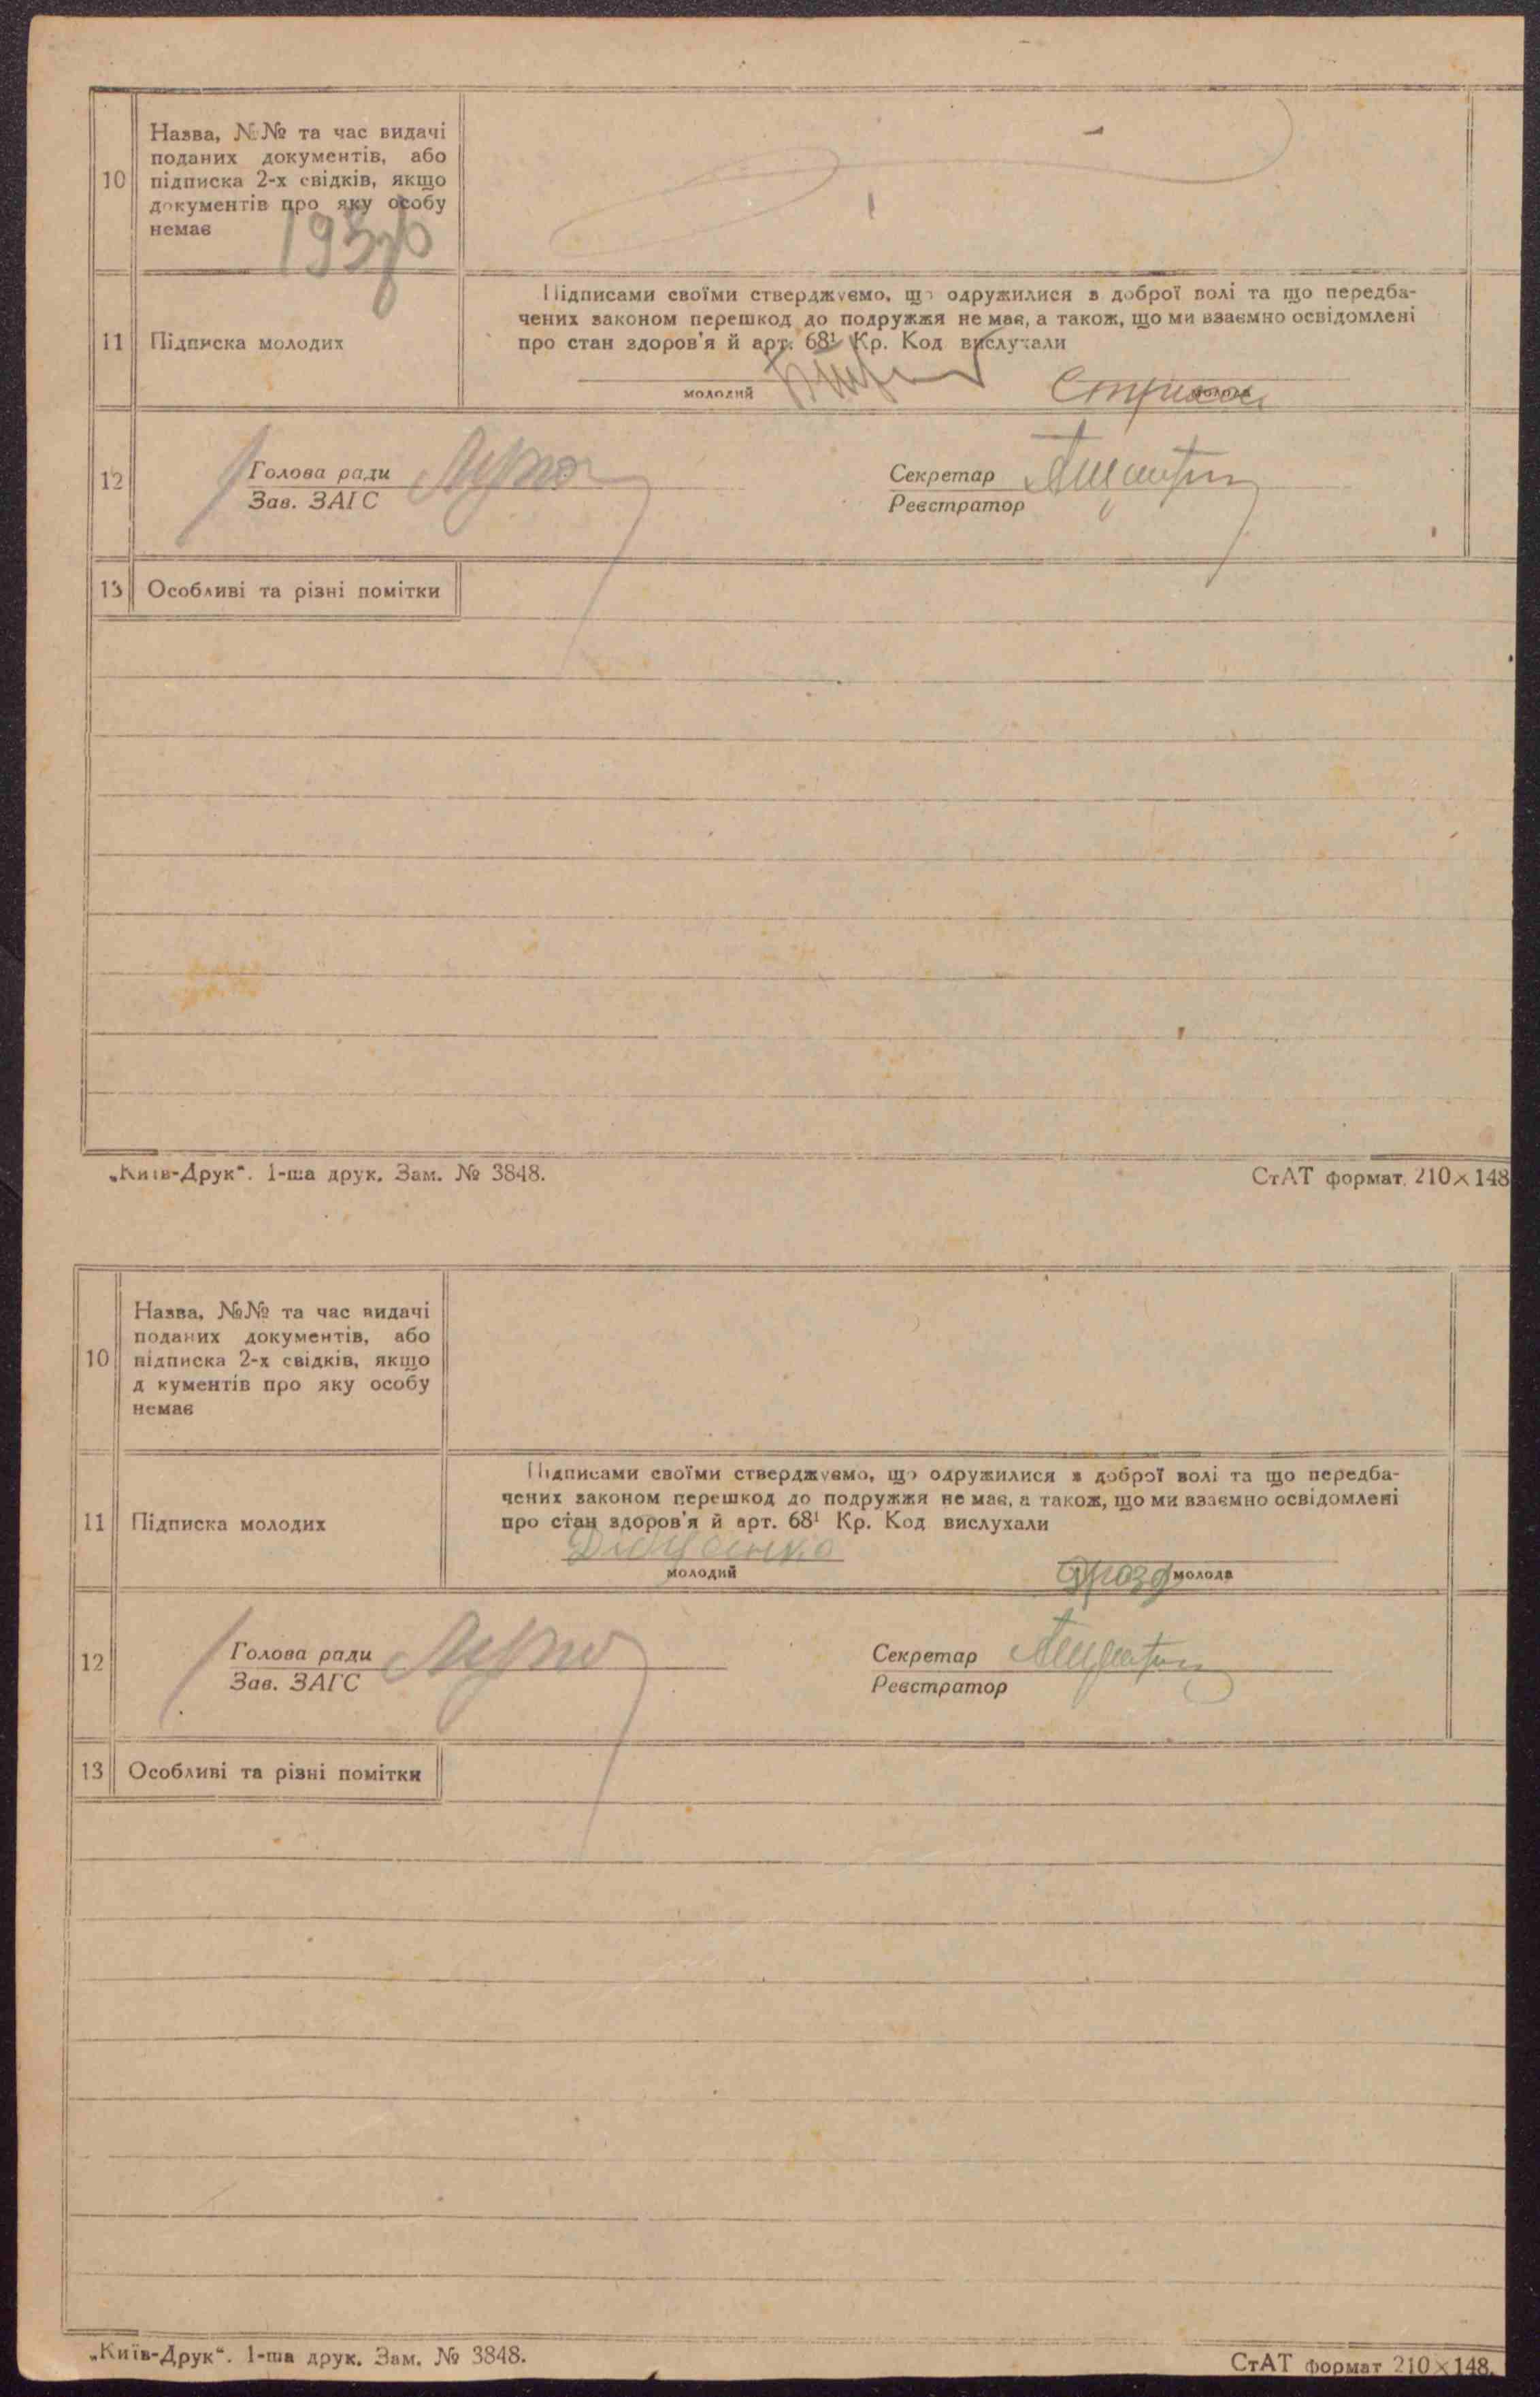 10
Назва, №№ та час видачі
поданих документів, або
підписка 2-х свідків, якщо
документів про яку особу
немає
11
Підписка молодих
Підписами своїми стверджуємо, що одружилися з доброї волі та що передба-
чених законом перешкод до подружжя не має, а також, що ми взаємно освідомлені
про стан здоров'я й арт. 68¹ Кр. Код вислухали
молодий
молода
12
Голова ради
Зав. ЗАГС
Секретар
Реєстратор
13
Особливі та різні помітки
„Київ-Друк“. 1-ша друк. Зам. № 3848.
СтАТ формат 210×148
10
Назва, №№ та час видачі
поданих документів, або
підписка 2-х свідків, якщо
д кументів про яку особу
немає
11
Підписка молодих
Підписами своїми стверджуємо, що одружилися з доброї волі та що передба-
чених законом перешкод до подружжя не має, а також, що ми взаємно освідомлені
про стан здоров'я й арт. 68¹ Кр. Код вислухали
молодий
Дрозд молода
12
Голова ради
Зав. ЗАГС
Секретар
Реєстратор
13
Особливі та різні помітки
„Київ-Друк“. 1-ша друк. Зам. № 3848.
СтАТ формат 210×148.